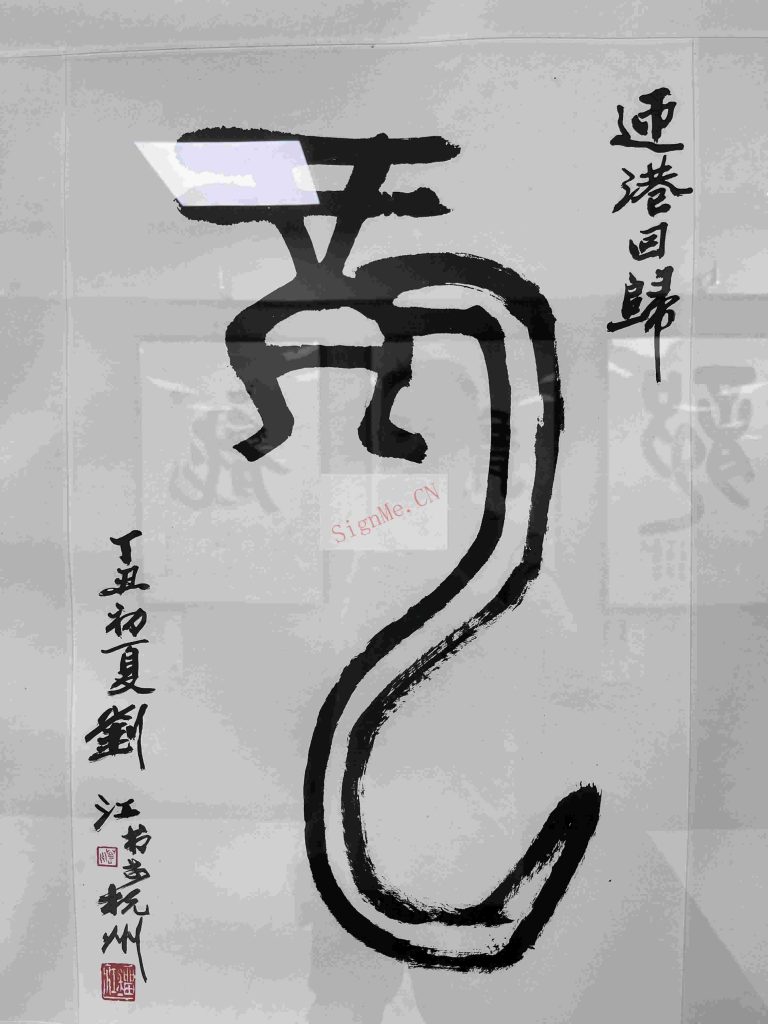 迎港回歸
龍
丁丑初夏劉江书於杭州
SignMe.CN